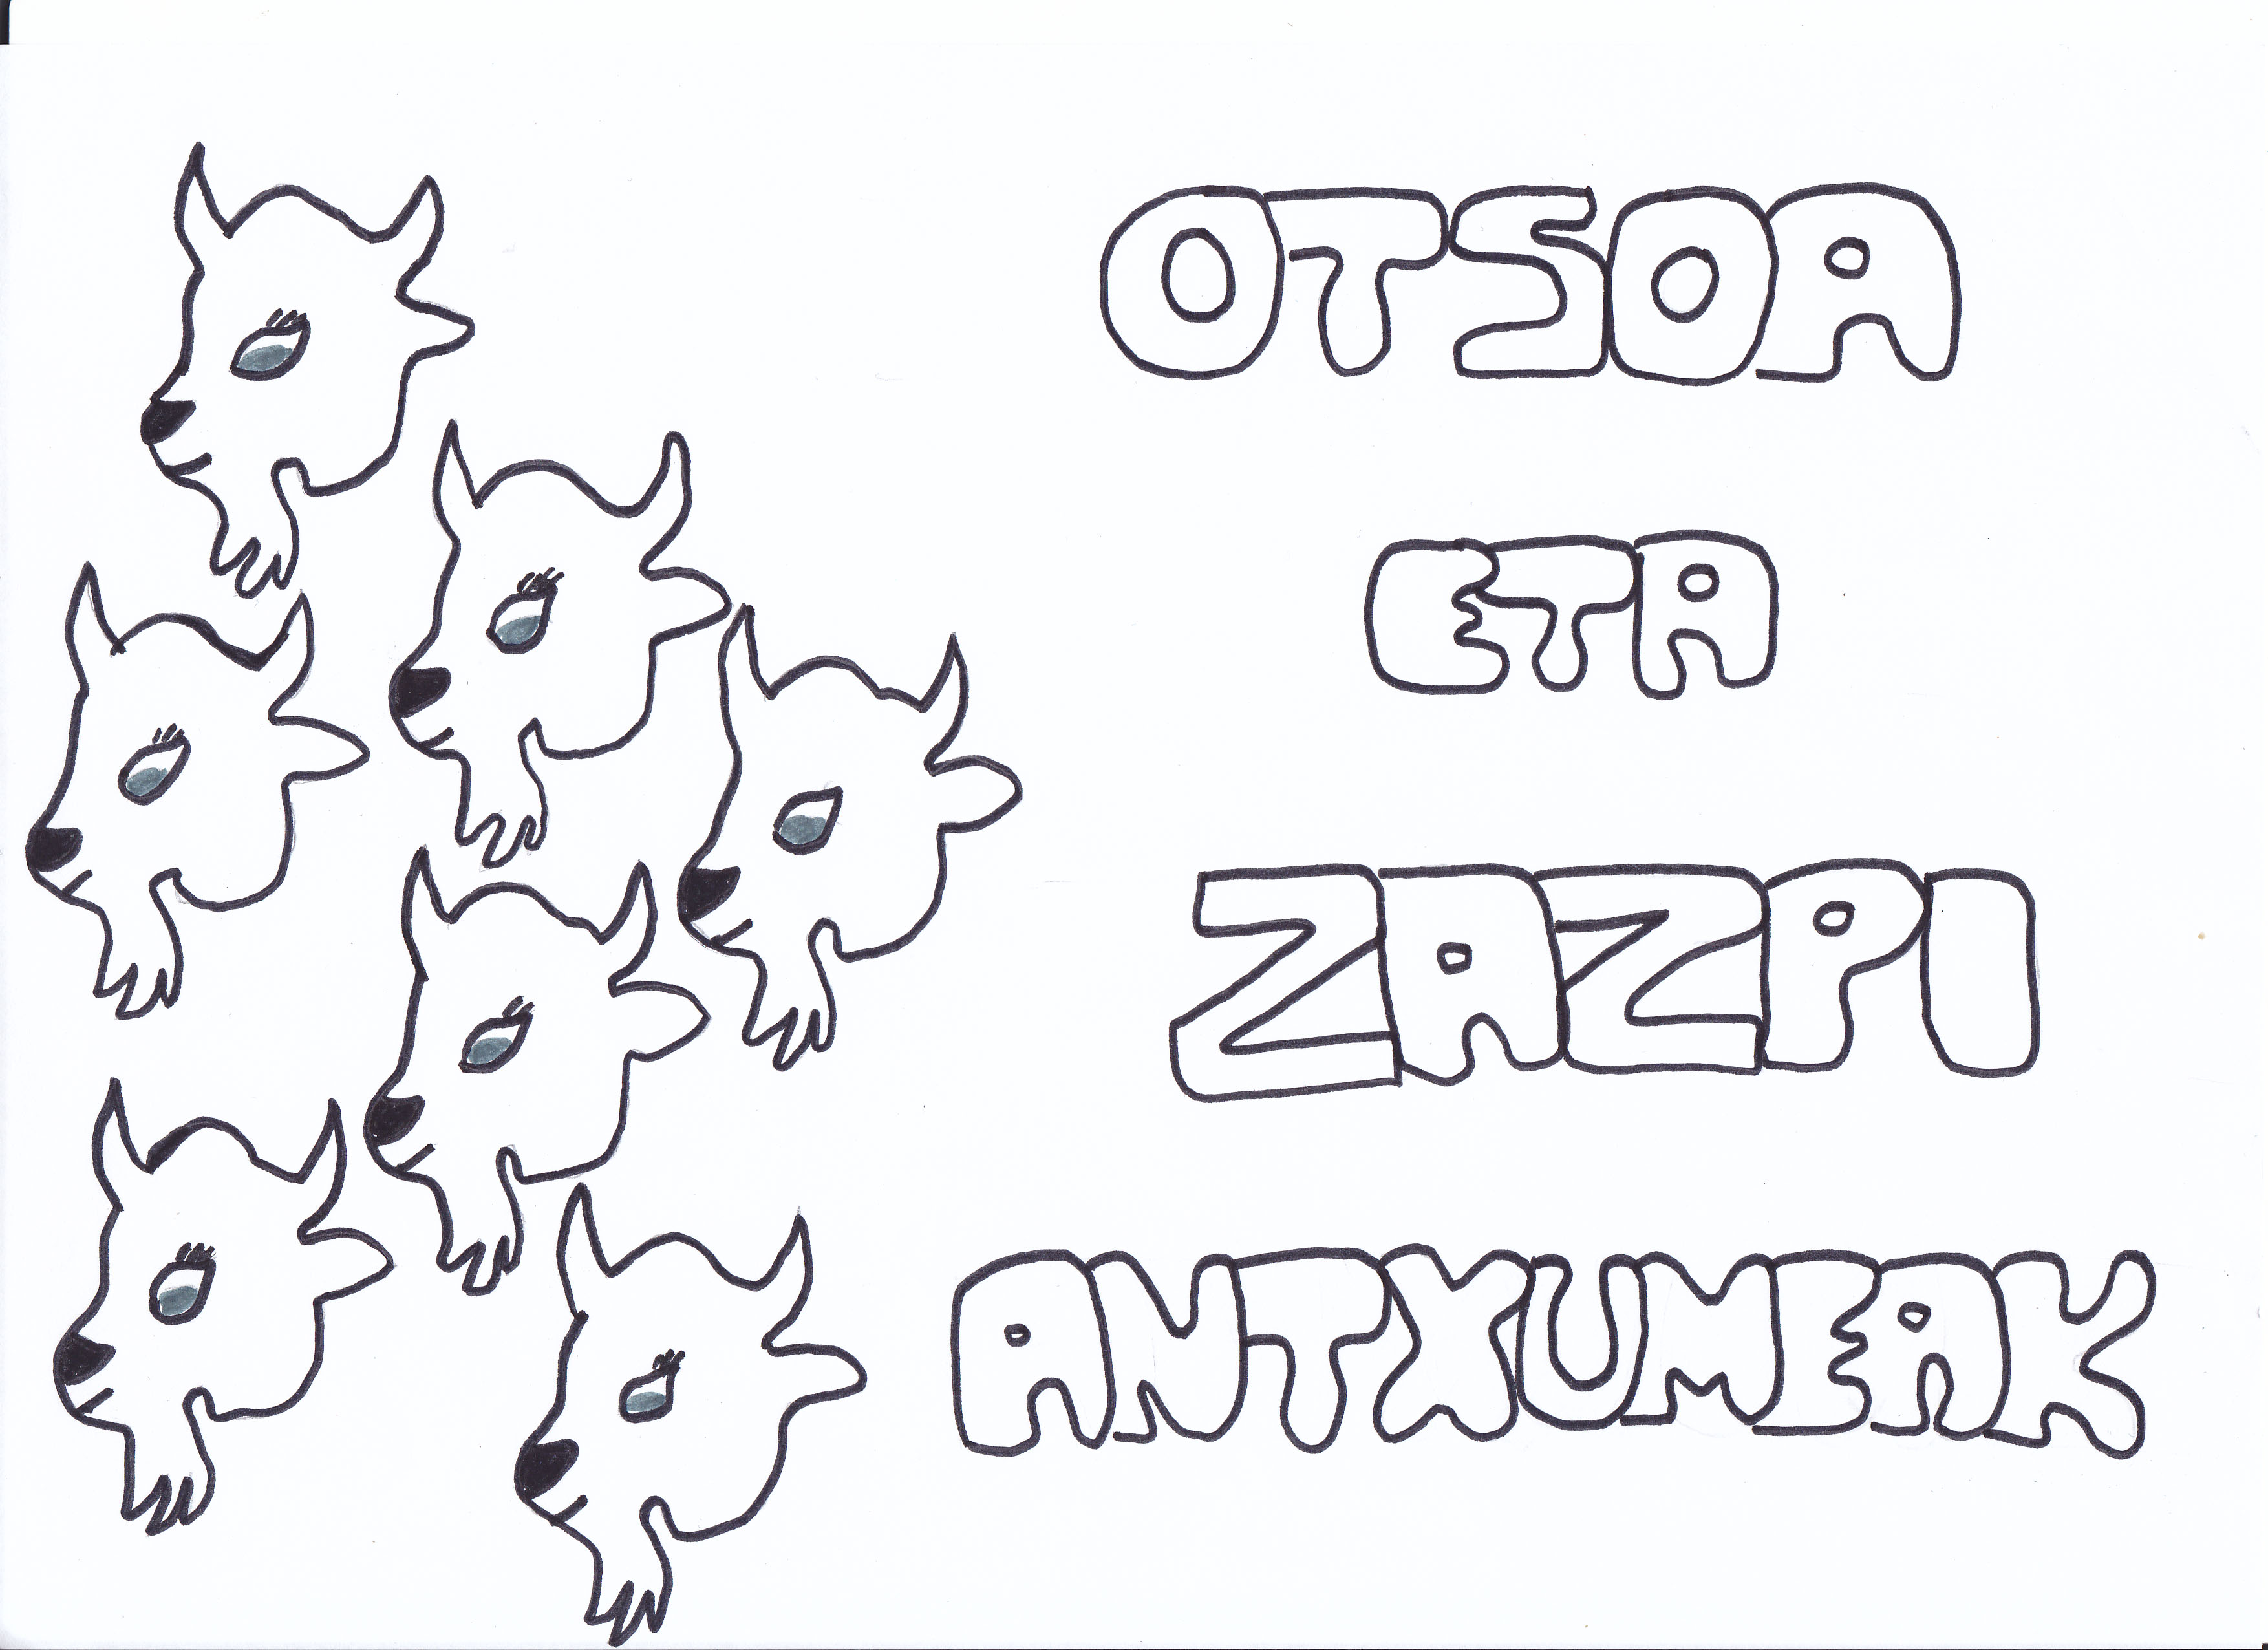 OTSOA
ETA
ZAZPI
ANTXUMEAK